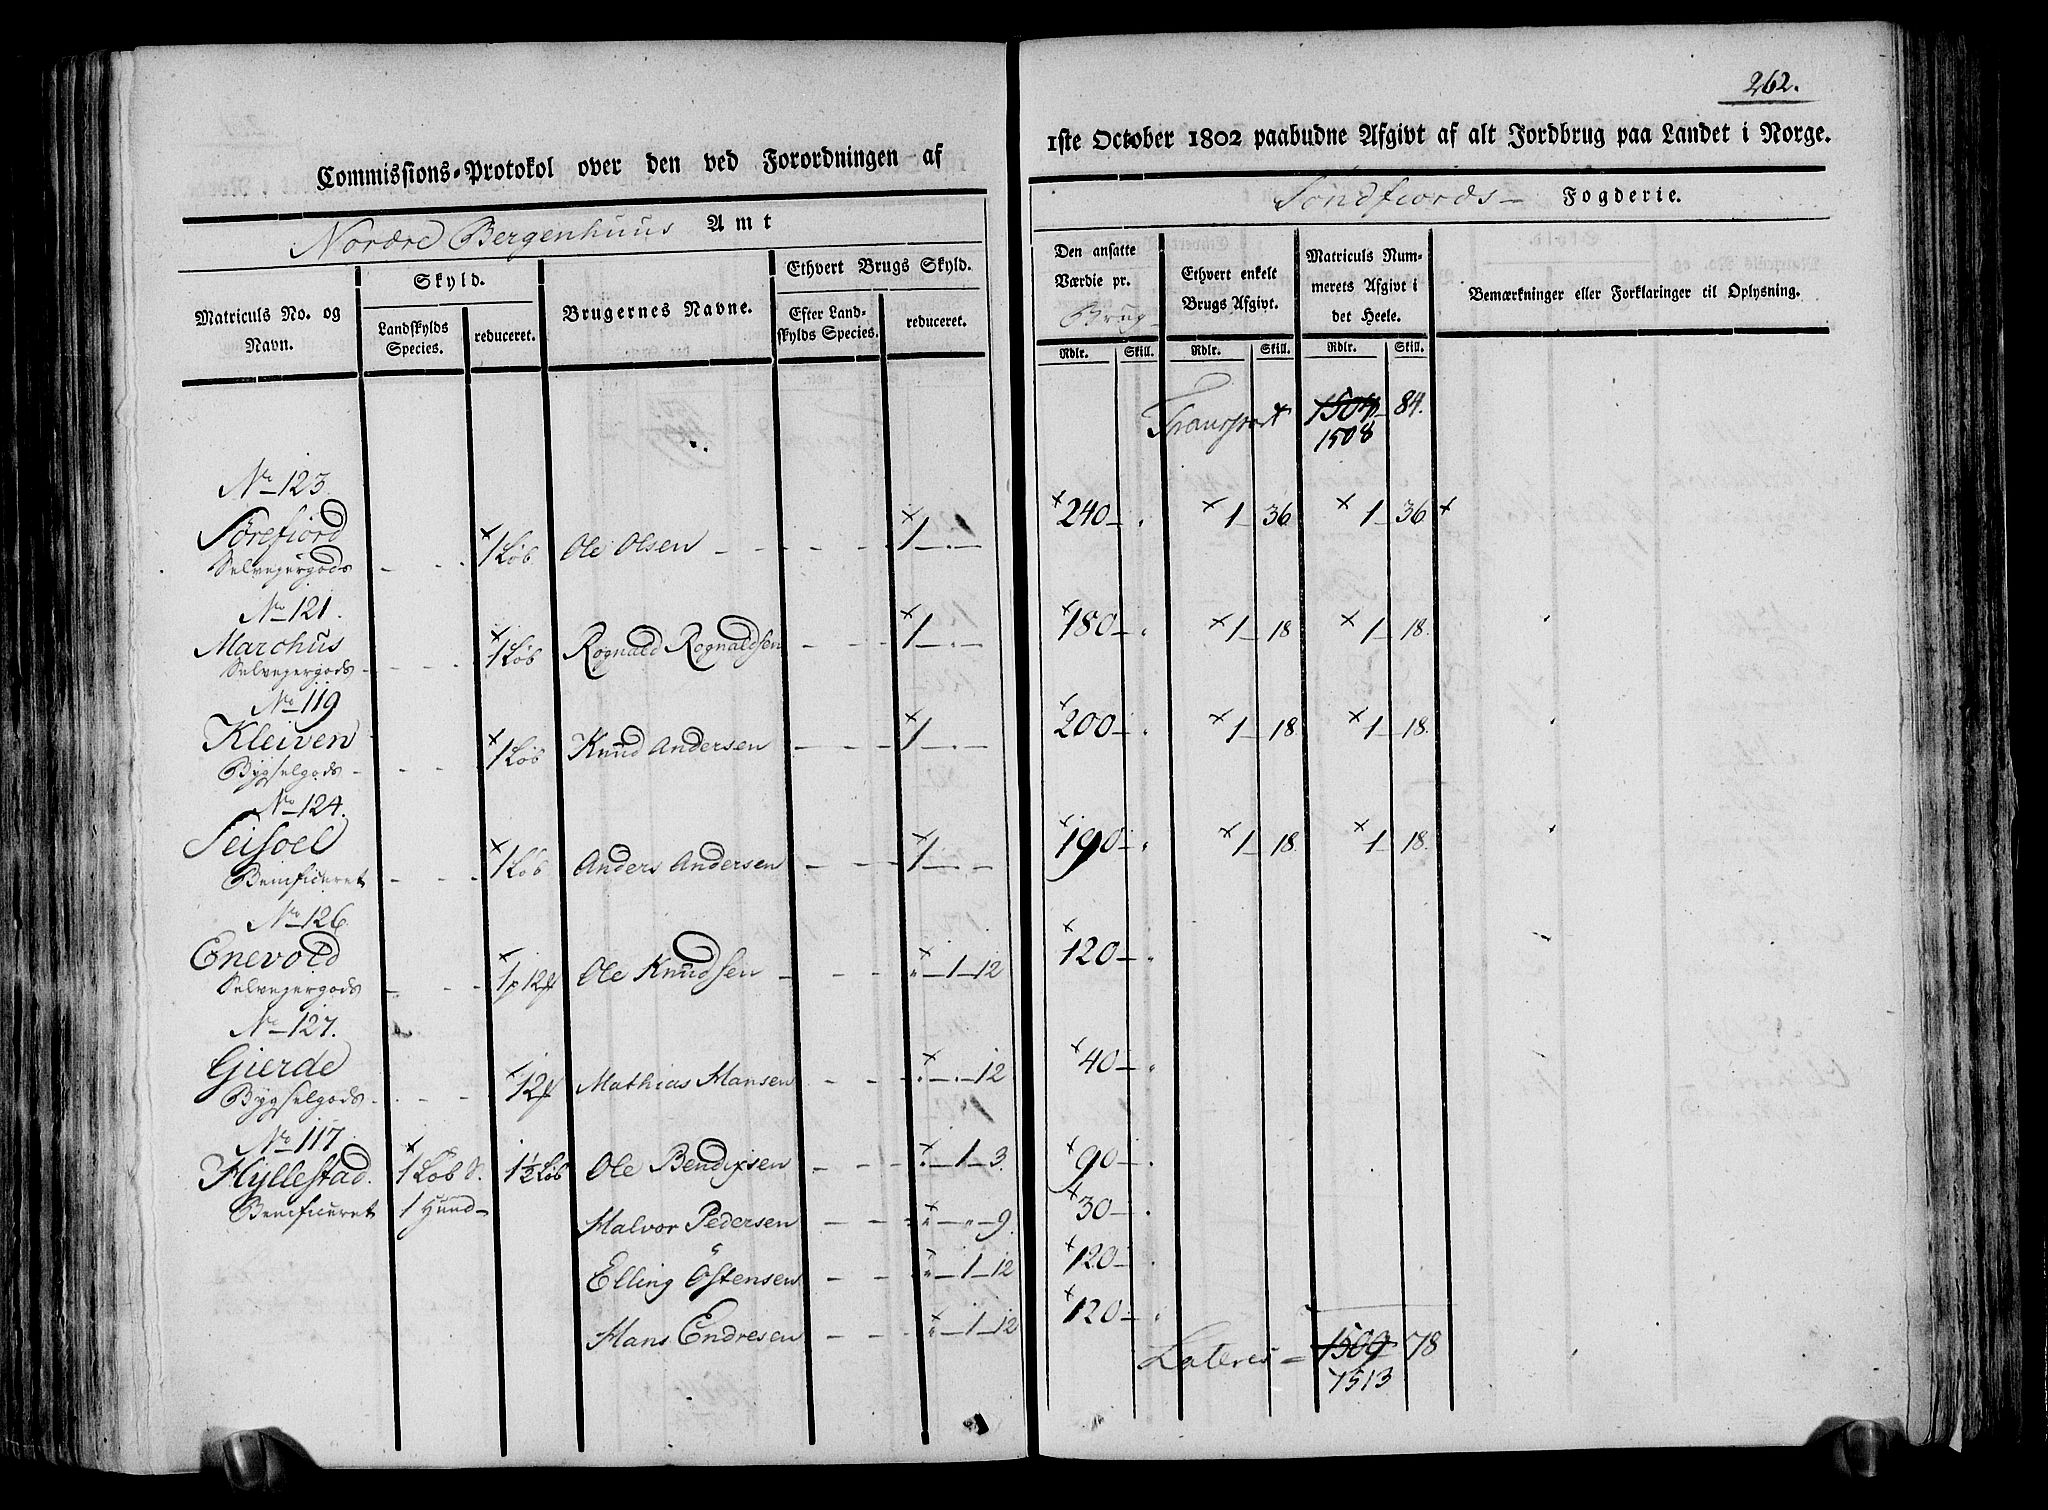 Commissions-Protokol over den ved Forordningen af
Nordre Bergenhuus Amt
Matriculs No. og Navn.
Skyld.
Landskylds Species.
reduceret.
Brugernes Navne.
Ethvert Brugs Skyld.
Efter Landskylds Species.
reduceret.
No 123
Sørefiord
Selvejergods - - × 1 Løb Ole Olsen - - - - × 1 - . -
No 121.
Marchus
Selvejergods - - - × 1 Løb Rognald Rognaldsen - - - × 1 - . -
No 119
Kleiven
Bygselgods - - - × 1 Løb Knud Andersen - - - × 1 - . -
No 124.
Seisoel
Benificeret - - - × 1 Løb Anders Andersen - - - × 1 - . -
No 126.
Enevold
Selvejergods - - - × 1 p 12 Ole Knudsen - - - " - 1 - 12
No 127.
Gierde
Bygselgods - - - × 12 Mathias Hansen - - × . - . - 12
No 117.
Hyllestad. × 1 Løb S. 1½ Løb Ole Bendixsen - - - × . - 1 - 3.
Benificeret 1 Hund - Halvor Pedersen - - - × " - " - 9.
Elling Östensen - - " - 1 - 12
Hans Endresen - - - × " - 1 - 12
262.
1ste October 1802 paabudne Afgivt af alt Jordbrug paa Landet i Norge.
Søndfiords - Fogderie.
Den ansatte Værdie pr. Brug
Ethvert enkelt Brugs Afgivt.
Matriculs Nummerets Afgivt i det Heele.
Bemærkninger eller Forklaringer til Oplysning.
Rdlr. Skill. Rdlr. Skill. Rdlr. Skill.
Transport 1504 - 84.
1508
× 240 - . × 1 - 36 × 1 - 36 ×
× 180 - . × 1 - 18 × 1 - 18.
× 200 - . × 1 - 18 × 1 - 18.
× 190 - . × 1 - 18. × 1 - 18.
× 120 - .
× 40 - .
× 90 - .
× 30 - .
× 120 - .
× 120 - .
Lateres = 1509 78
1513